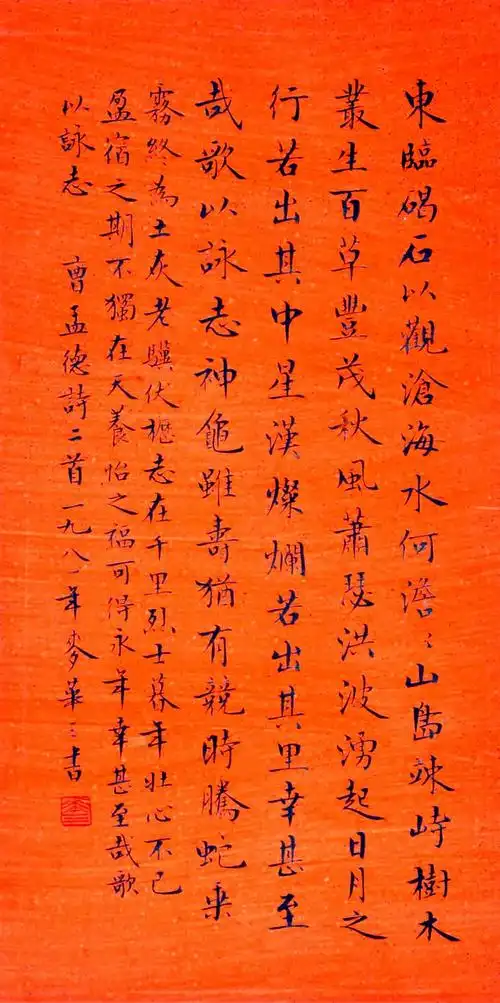 東臨碣石以觀滄海水何澹〻山島竦峙樹木
叢生百草豐茂秋風蕭瑟洪波湧起日月之
行若出其中星漢燦爛若出其里幸甚至
哉歌以詠志神龜雖壽猶有競時騰蛇乘
霧終為土灰老驥伏櫪志在千里烈士暮年壯心不已
盈宿之期不獨在天養怡之福可得永年幸甚至哉歌
以詠志 曹孟德詩二首一九八一年麥華三書